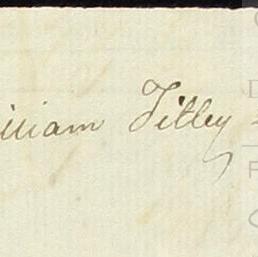 illiam Tilley